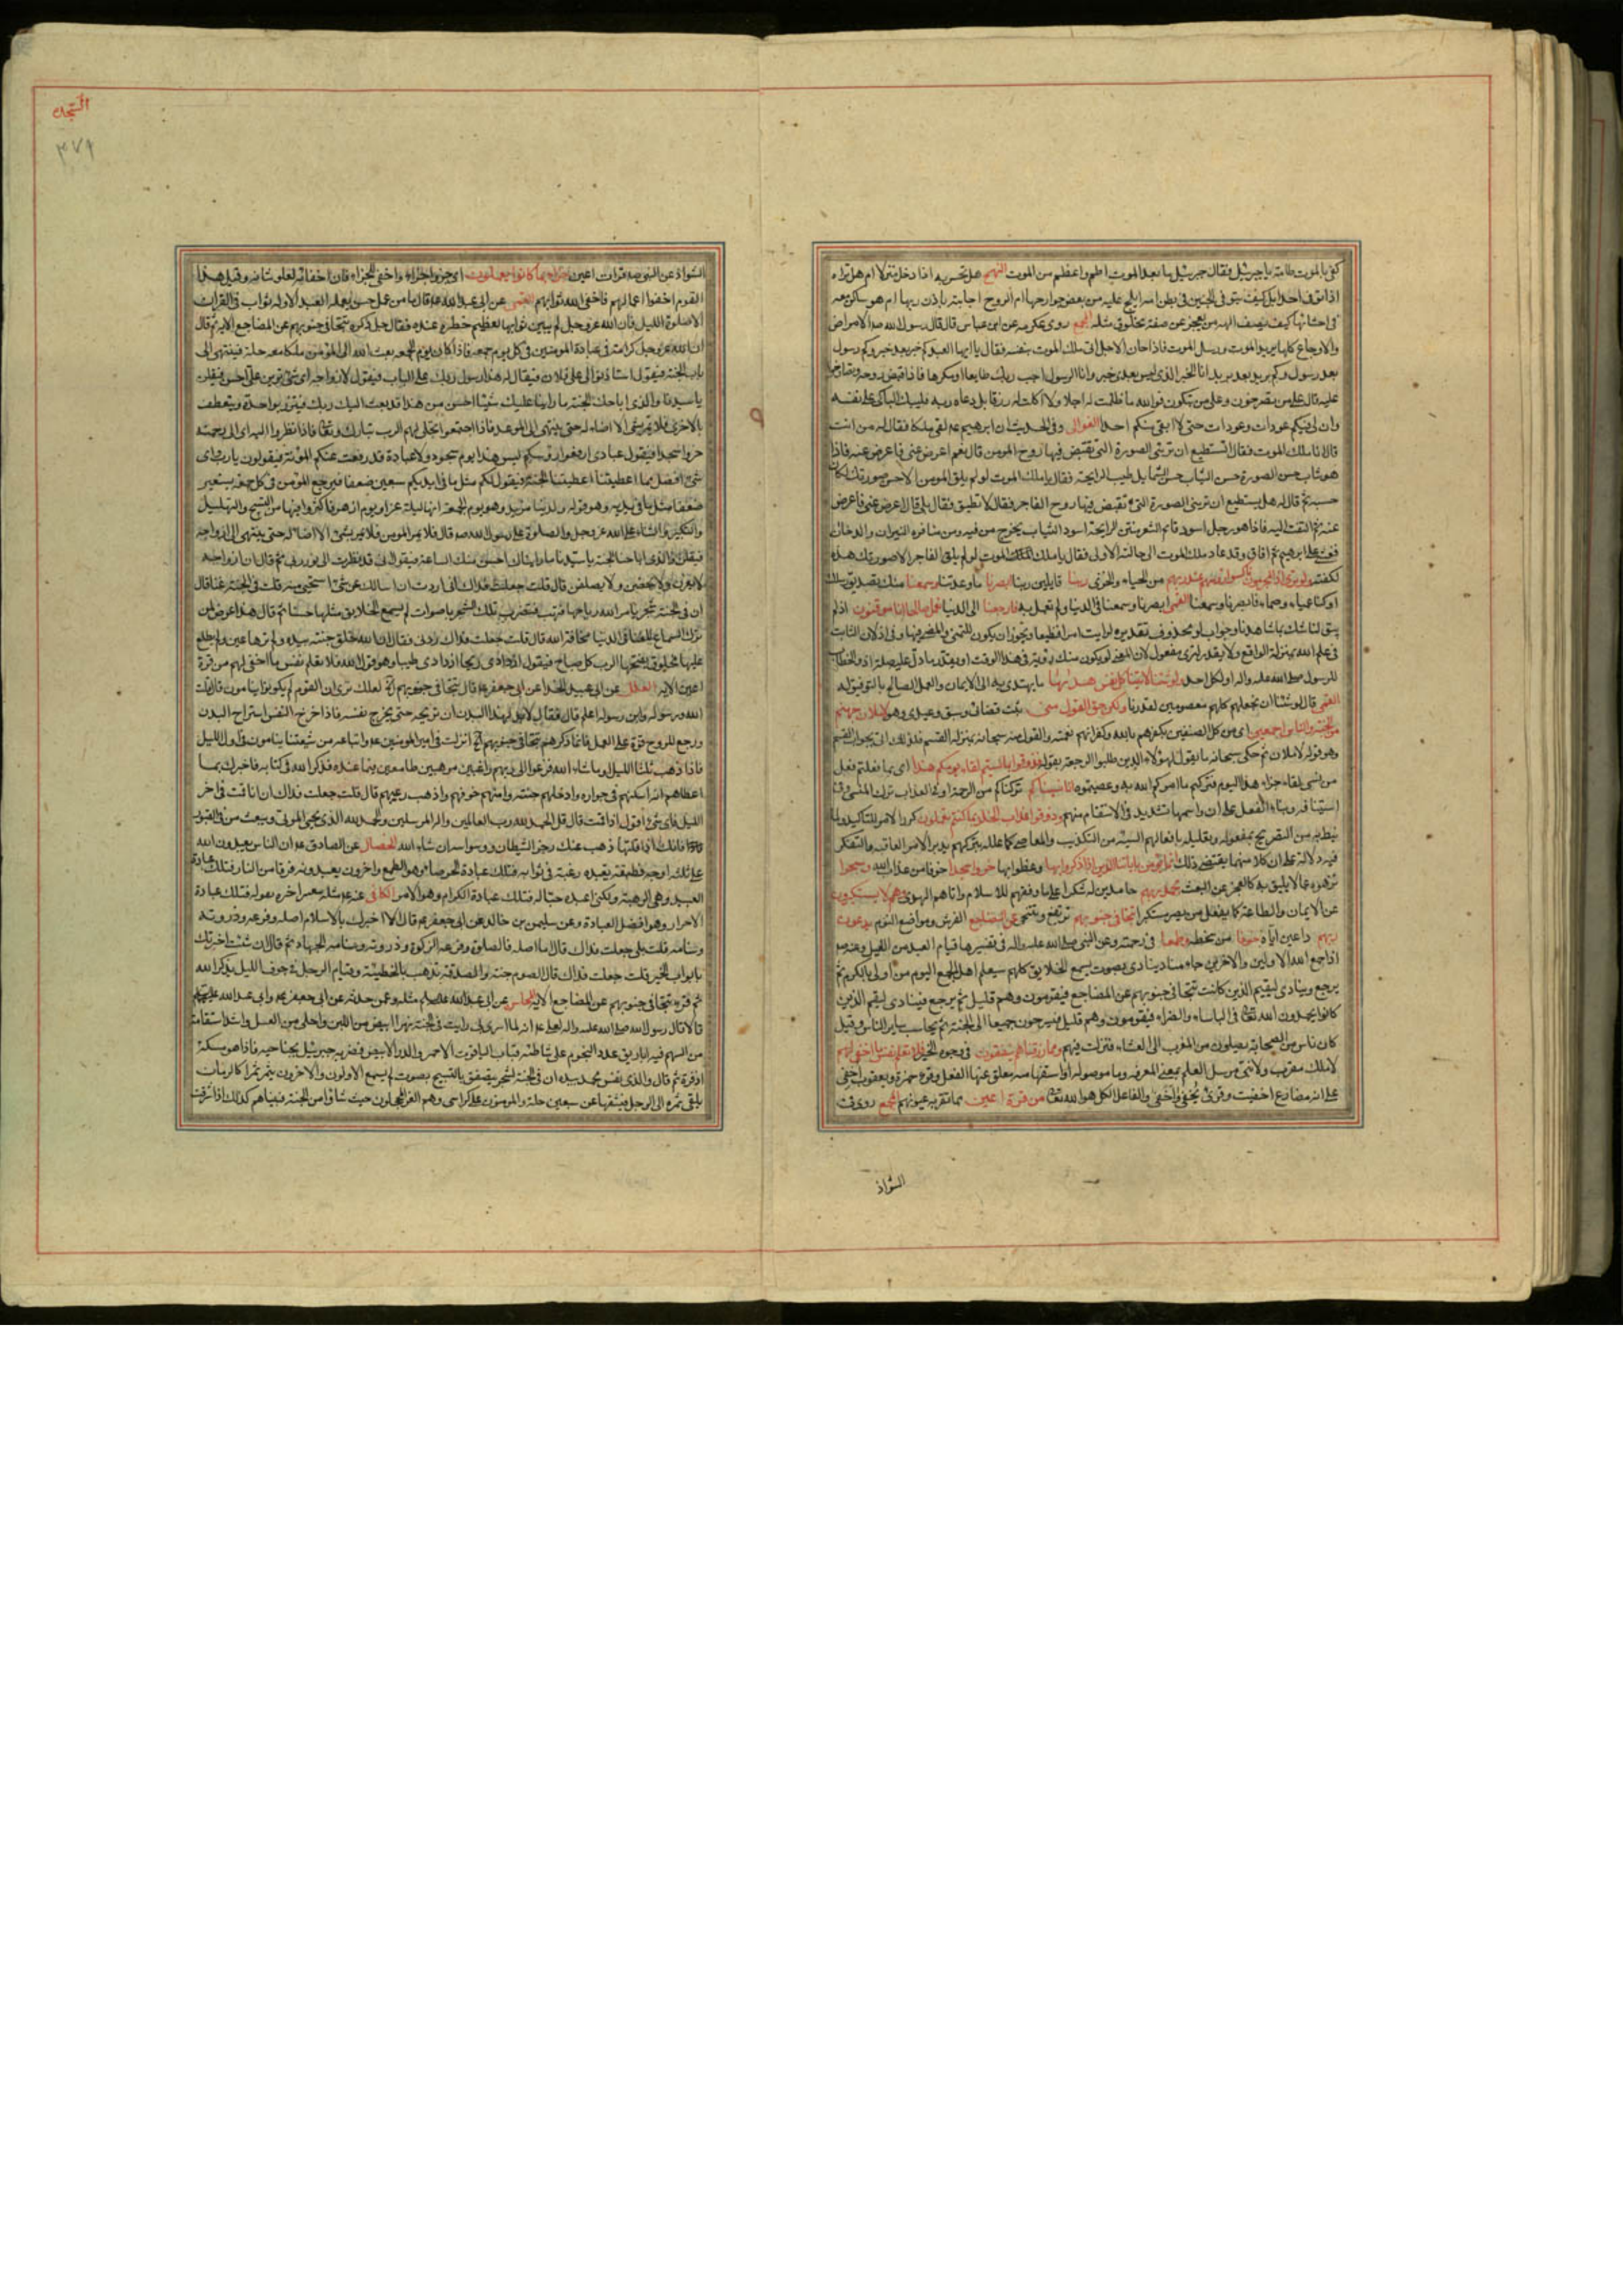 كفى بالموت طامة يا جبرئيل فقال جبرئيل ما بعد الموت اطم واعظم من الموت النهج هل تحس به اذا دخل منزلا ام هل تراه
اذا توفى احدا بل كيف يتوفى الجنين فى بطن امه ايلج عليه من بعض جوارحها ام الروح اجابته باذن ربها ام هو ساكن معه
فى احشائها كيف يصف الهه من يعجز عن صفة مخلوق مثله المجمع روى عكرمه عن ابن عباس قال قال رسول الله صه الامراض
والاوجاع كلها بريد الموت ورسل الموت فاذا حان الاجل اتى ملك الموت بنفسه فقال يا ايها العبد كم خبر بعد خبر وكم رسول
بعد رسول وكم بريد بعد بريد انا الخبر الذى ليس بعدى خبر وانا الرسول اجب ربك طايعا او مكرها فاذا قبض روحه وتصارخوا
عليه قال على من تصرخون وعلى من تبكون فوالله ما ظلمت له اجلا ولا اكلت له رزقا بل دعاه ربه فليبك الباكى على نفسه
وان لى فيكم عودات وعودات حتى لا ابقى منكم احدا الغوالى وفى الحديث ان ابرهيم عم لقى ملكا فقال له من انت
قال انا ملك الموت فقال اتستطيع ان ترينى الصورة التى تقبض فيها روح المومن قال نعم اعرض عنى فاعرض عنه فاذا
هو شاب حسن الصورة حسن الثياب حسن الشمايل طيب الرايحة فقال يا ملك الموت لو لم يلق المومن الا حسن صورتك لكان
حسبه ثم قال له هل تستطيع ان ترينى الصورة التى تقبض فيها روح الفاجر فقال لا تطيق فقال بلى قال اعرض عنى فاعرض
عنه ثم التفت اليه فاذا هو رجل اسود قائم الشعر منتن الرايحة اسود الثياب يخرج من فيه ومن مناخره النيران والدخان
فغشى على ابرهيم ثم افاق وقد عاد ملك الموت الى حالته الاولى فقال يا ملك الموت لو لم يلق الفاجر الا صورتك هذه
لكفته ولو ترى اذ المجرمون ناكسوا رؤسهم عند ربهم من الحياء والخزى ربنا قايلين ربنا ابصرنا ما وعدتنا وسمعنا منك تصديق رسلك
او كنا عمياء وصماء فابصرنا وسمعنا القمى ابصرنا وسمعنا فى الدنيا ولم نعمل به فارجعنا الى الدنيا نعمل صالحا انا موقنون اذ لم
يبق لنا شك بما شاهدنا وجواب لو محذوف تقديره لرايت امرا فظيعا ويجوز ان يكون للتمنى والمضى فيها وفى اذ لان الثابت
فى علم الله بمنزلة الواقع ولا يقدر لترى مفعول لان المعنى لو يكون منك رؤية فى هذا الوقت او يقدر ما دل عليه صلة اذ والخطاب
للرسول صلى الله عليه واله او لكل احد ولو شئنا لاتينا كل نفس هديها ما يهتدى به الى الايمان والعمل الصالح بالتوفيق له
القمى قال لو شئنا ان نجعلهم كلهم معصومين لقدرنا ولكن حق القول منى ثبت قضائى وسبق وعيدى وهو لاملان جهنم
من الجنة والناس اجمعين اى من كل الصنفين بكفرهم بالله وكفرانهم نعمته والقول منه سبحانه بمنزلة القسم فلذلك اتى بجواب القسم
وهو قوله لاملان ثم حكى سبحانه ما يقول لهؤلاء الذين طلبوا الرجعة بقوله فذوقوا بما نسيتم لقاء يومكم هذا اى بما فعلتم فعل
من نسى لقاء جزاء هذا اليوم فتركتم ما امركم الله به وعصيتموه انا نسيناكم تركناكم من الرحمة او فى العذاب ترك المنسى وفى
استينافه وبناء الفعل على ان واسمها تشديد فى الانتقام منهم وذوقوا عذاب الخلد بما كنتم تعملون كرر الامر للتاكيد ولما
نيط به من التصريح بمفعوله وتعليله بافعالهم السيئة من التكذيب والمعاصى كما علله بتركهم تدبر الامر العاقبة والتفكر
فيه دلالة على ان كلا منهما يقتضى ذلك انما يؤمن باياتنا الذين اذا ذكروا بها وعظوا بها خروا سجدا خوفا من عذاب الله وسبحوا
نزهوه عما لا يليق به كالعجز عن البعث بحمد ربهم حامدين له شكرا على ما وفقهم للاسلام واتاهم الهدى وهم لا يستكبرون
عن الايمان والطاعة كما يفعل من يصر مستكبرا تتجافى جنوبهم ترتفع وتتنحى عن المضاجع الفرش ومواضع النوم يدعون
ربهم داعين اياه خوفا من سخطه وطمعا فى رحمته وعن النبى صلى الله عليه واله فى تفسيرها قيام العبد من الليل وعنه صه
اذا جمع الله الاولين والاخرين جاء مناد ينادى بصوت يسمع الخلايق كلهم سيعلم اهل الجمع اليوم من اولى بالكرم ثم
يرجع وينادى ليقيم الذين كانت تتجافى جنوبهم عن المضاجع فيقومون وهم قليل ثم يرجع فينادى ليقم الذين
كانوا يحمدون الله تعالى فى الباساء والضراء فيقومون وهم قليل فيسرحون جميعا الى الجنة ثم يحاسب ساير الناس وقيل
كان ناس من الصحابة يصلون من المغرب الى العشاء فنزلت فيهم ومما رزقناهم ينفقون فى وجوه الخير فلا تعلم نفس ما اخفى لهم
لا ملك مقرب ولا نبى مرسل العلم بمعنى المعرفه وما موصوله او استفهاميه معلق عنها الفعل وقرء حمزة ويعقوب اخفى
على انه مضارع اخفيت وقرئ نخفى واخفى والفاعل للكل هو الله تعالى من قرة اعين مما تقر به عيونهم المجمع روى فى
الشواذ
السجدة
٣٧٩
الشواذ عن النبى صه قرات اعين جزاء بما كانوا يعملون اى جزوا جزاء واخفى للجزاء فان اخفائه لعلو شانه وقيل هذا
القوم اخفوا اعمالهم فاخفى الله ثوابهم القمى عن ابى عبد الله عم قال ما من عمل حسن يعمله العبد الا وله ثواب فى القران
الا صلوة الليل فان الله عز وجل لم يبين ثوابها لعظيم خطره عنده فقال جل ذكره تتجافى جنوبهم عن المضاجع الاية ثم قال
ان لله عز وجل كرامة فى عبادة المومنين فى كل يوم جمعه فاذا كان يوم الجمعه بعث الله الى المؤمن ملكا معه حلة فينتهى الى
باب الجنة فيقول استاذنوا لى على فلان فيقال له هذا رسول ربك على الباب فيقول لازواجه اى شئ ترين على احسن فيقلن
يا سيدنا والذى اباحك الجنة ما راينا عليك شيئا احسن من هذا قد بعث اليك ربك فيتزر بواحدة ويتعطف
بالاخرى فلا يمر بشئ الا اضاء له حتى ينتهى الى الموعد فاذا اجتمعوا تجلى لهم الرب تبارك وتعالى فاذا نظروا اليه اى الى رحمته
خروا سجدا فيقول عبادى ارفعوا رؤسكم ليس هذا يوم سجود ولا عبادة قد رفعت عنكم المؤنة فيقولون يا رب واى
شئ افضل مما اعطيتنا اعطيتنا الجنة فيقول لكم مثل ما فى ايديكم سبعين ضعفا فيرجع المؤمن فى كل جمعه بسبعين
ضعفا مثل ما فى يديه وهو قوله ولدينا مزيد وهو يوم الجمعة انها ليلة غراء ويوم ازهر فاكثروا فيها من التسبيح والتهليل
والتكبير والثناء على الله عز وجل والصلوة على رسول الله صه قال فلا يمر المومن فلا يمر بشئ الا اضاء له حتى ينتهى الى ازواجه
فيقلن والذى اباحنا الجنة يا سيدنا ما رايناك احسن منك الساعة فيقول انى قد نظرت الى نور ربى ثم قال ان ازواجه
لا يغرن ولا يحضن ولا يصلفن قال قلت جعلت فداك انى اردت ان اسالك عن شئ استحيى منه قلت فى الجنة غنا قال
ان فى الجنة شجرا يامر الله رياحها فتهب فتضرب تلك الشجر باصوات لم يسمع الخلايق مثلها حسنا ثم قال هذا عوض لمن
ترك السماع للغنا فى الدنيا مخافة الله قال قلت جعلت فداك زدنى فقال ان الله خلق جنته بيده ولم ترها عين ولم يطلع
عليها مخلوق يفتحها الرب كل صباح فيقول ازدادى ريحا ازدادى طيبا وهو قول الله فلا تعلم نفس ما اخفى لهم من قرة
اعين الاية العلل عن ابى عبيد الحذاء عن ابى جعفر عم قال تتجافى جنوبهم الآية لعلك ترى ان القوم لم يكونوا ينامون قال قلت
الله ورسوله وابن رسوله اعلم قال فقال لا بد لهذا البدن ان تريحه حتى يخرج نفسه فاذا خرج النفس استراح البدن
ورجع للروح قوة على العمل فانما ذكرهم تتجافى جنوبهم الخ انزلت فى امير المومنين عم واتباعه من شيعتنا ينامون فى اول الليل
فاذا ذهب ثلثا الليل او ما شاء الله فزعوا الى ربهم راغبين مرهبين طامعين فيما عنده فذكر الله فى كتابه فاخبرك بما
اعطاهم انه اسكنهم فى جواره وادخلهم جنته وامنهم خوفهم واذهب رعبهم قال قلت جعلت فداك ان انا قمت فى اخر
الليل فاى شئ اقول اذا قمت قال قل الحمد لله رب العالمين واله المرسلين والحمد لله الذى يحيى الموتى ويبعث من فى القبور
فانك اذا قلتها ذهب عنك رجز الشيطان ووسواسه ان شاء الله الخصال عن الصادق عم ان الناس يعبدون الله
على ثلثه اوجه فطبقة يعبده رغبة فى ثوابه فتلك عبادة الحرصاء وهو الطمع واخرون يعبدونه فرقا من النار فتلك عبادة
العبيد وهى الرهبة ولكنى اعبده حبا له فتلك عبادة الكرام وهو الامن الكافى عنه عم مثله بتغيير اخره بقوله فتلك عبادة
الاحرار وهو افضل العبادة وعن سليمن بن خالد عن ابى جعفر عم قال الا اخبرك بالاسلام اصله وفرعه وذروته
وسنامه قلت بلى جعلت فداك قال اما اصله فالصلوة وفرعه الزكوة وذروته وسنامه الجهاد ثم قال ان شئت اخبرتك
بابواب الخير قلت جعلت فداك قال الصوم جنة والصدقة تذهب بالخطيئة وقيام الرجل فى جوف الليل يذكر الله
ثم قرء تتجافى جنوبهم عن المضاجع الاية المحاسن عن ابى عبد الله عليه السلام مثله وعمن حدثه عن ابى جعفر عم وابى عبد الله عليهما
قالا قال رسول الله صلى الله عليه واله لعلى عم انه لما اسرى بى رايت فى الجنة نهرا ابيض من اللبن واحلى من العسل واشد استقامة
من السهم فيه اباريق عدد النجوم على شاطئه قباب الياقوت الاحمر والدر الابيض فضرب جبرئيل بجناحيه فاذا هو مسكة
اذفرة ثم قال والذى نفس محمد بيده ان فى الجنة لشجر يتصفق بالتسبيح بصوت لم يسمع الاولون والاخرون يثمر ثمرا كالرمان
يلقى ثمره الى الرجل فيشقها عن سبعين حلة والمومنون على كراسى وهم الغر المحجلون حيث شاؤا من الجنة فبيناهم كذلك اذ اشرفت